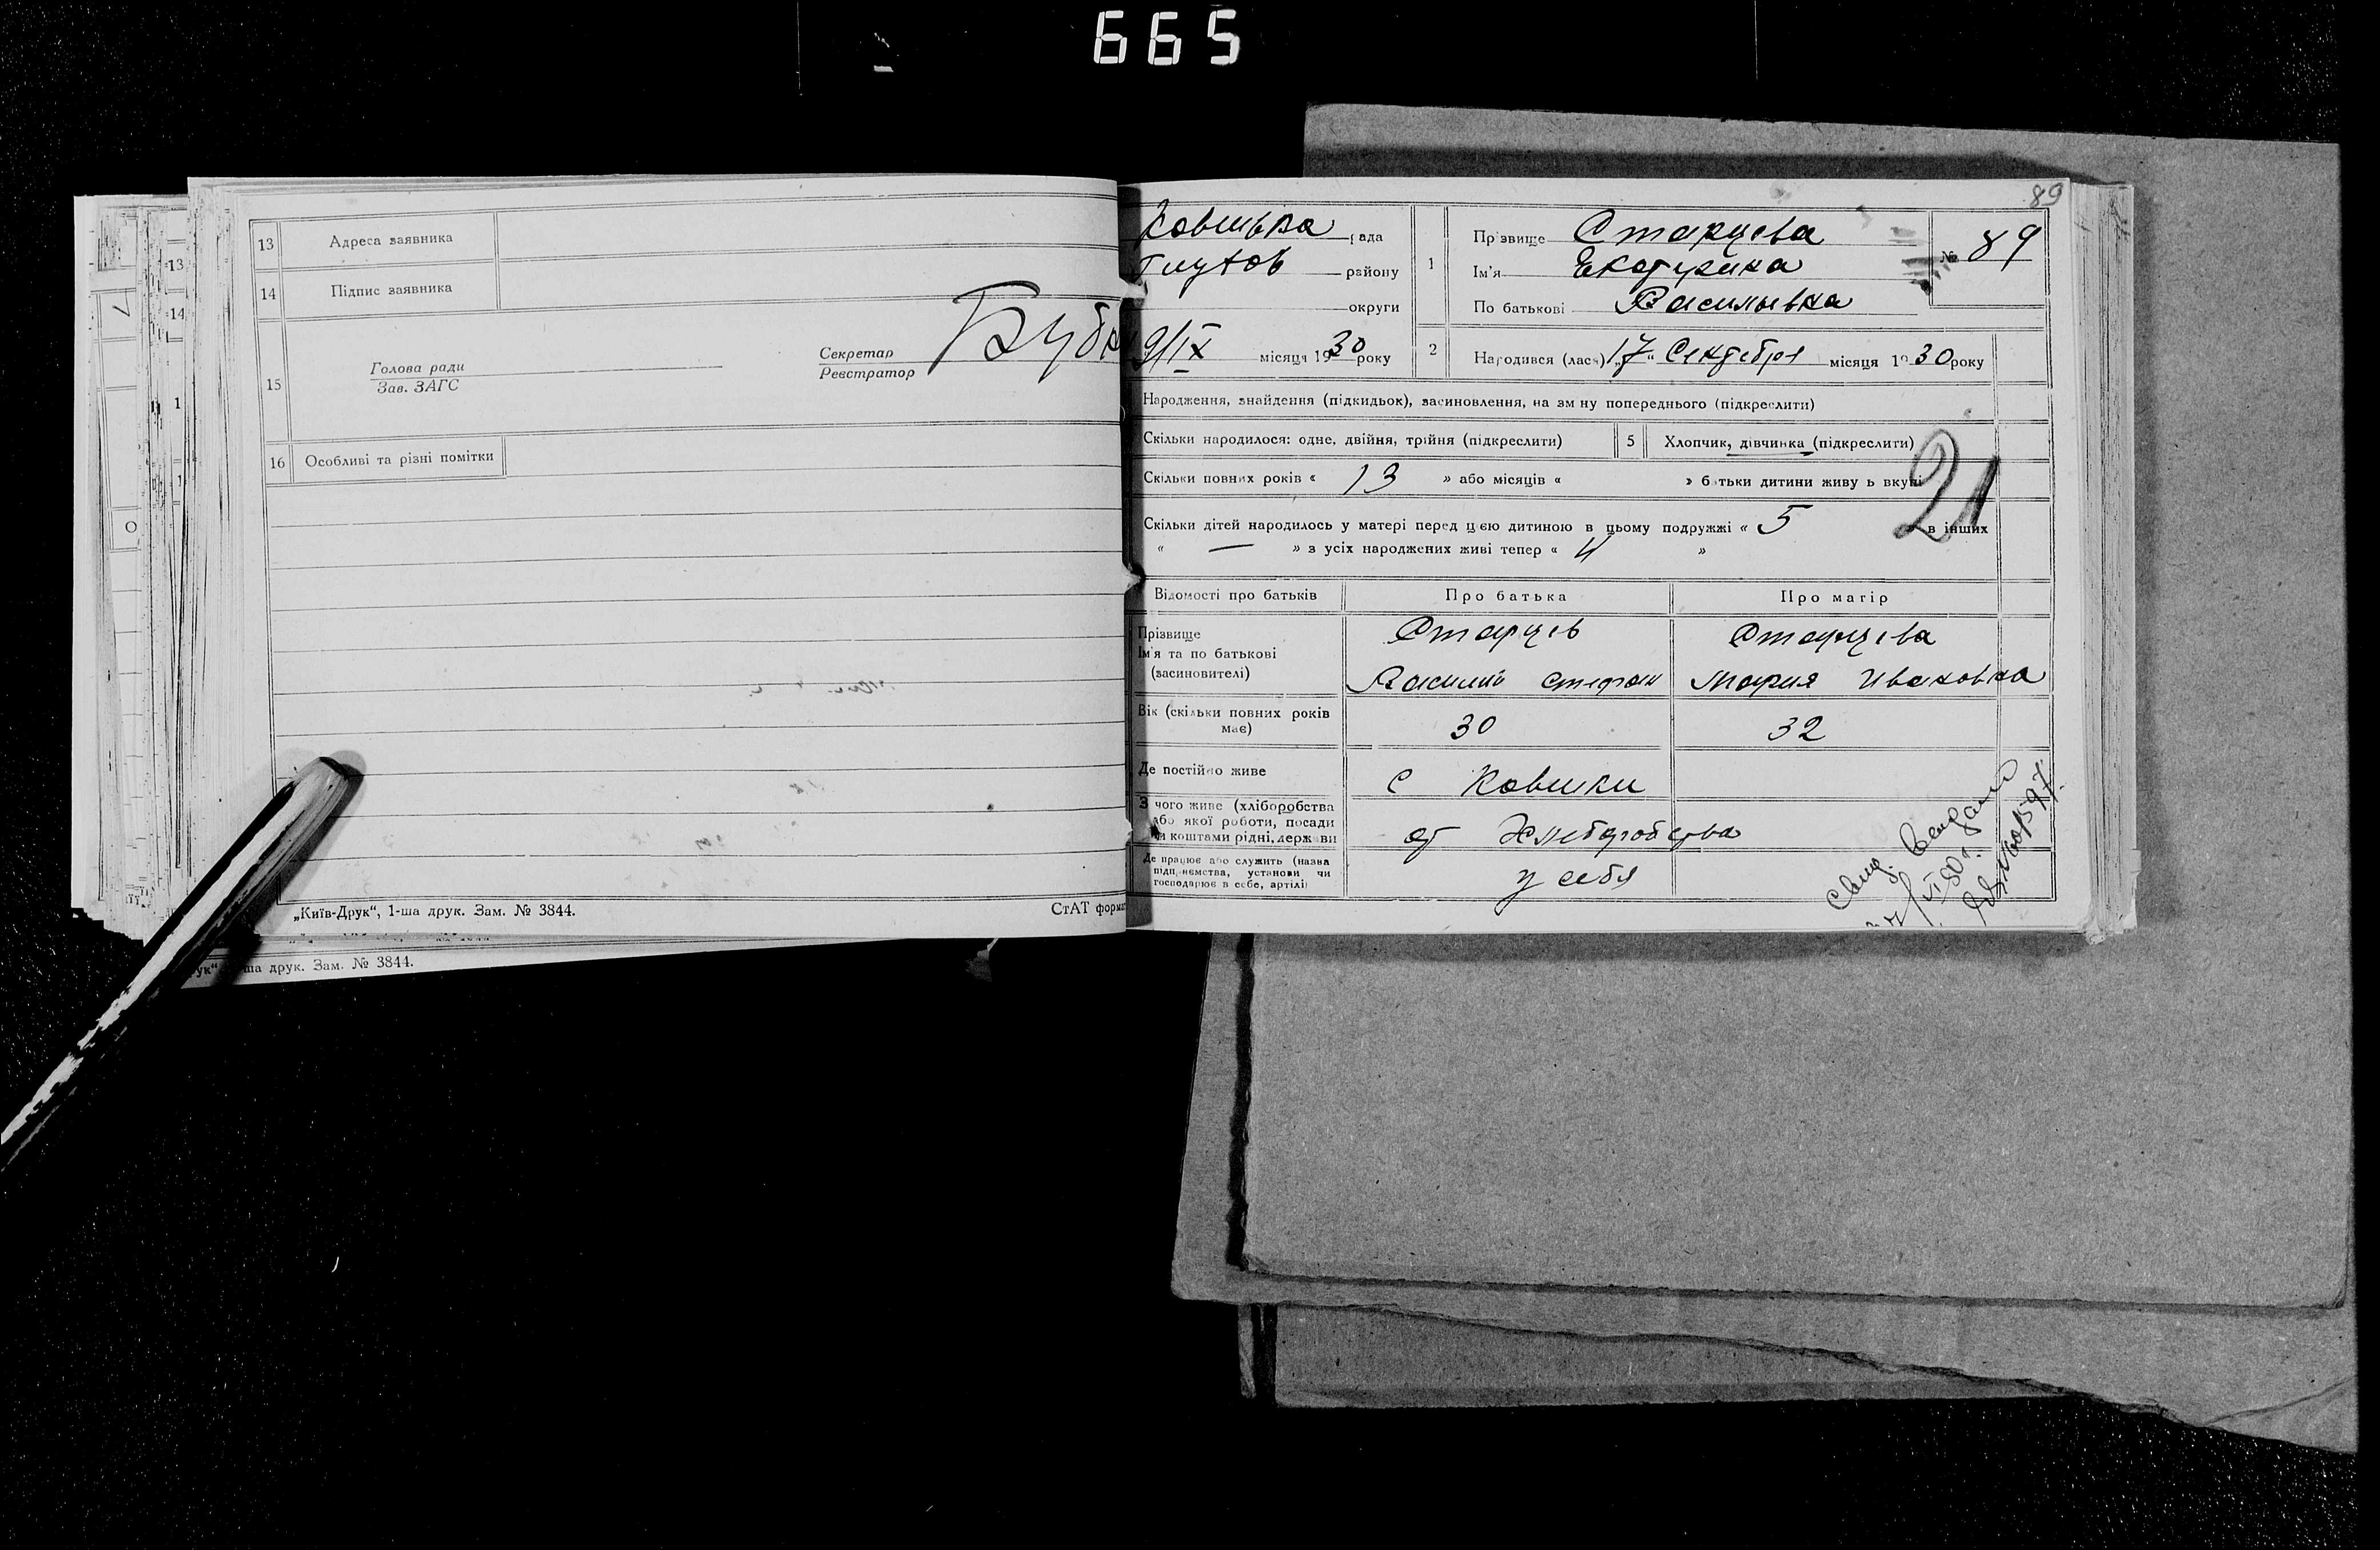 665
13 Адреса заявника
14 Підпис заявника
15 Голова ради
Зав. ЗАГС
Секретар
Реєстратор
16 Особливі та різні помітки
„Київ-Друк“, 1-ша друк. Зам. № 3844.
СтАТ форма
ша друк. Зам. № 3844.
89
рада
району
округи
9/IX місяця 1930 року
1 Прізвище Старцева
Ім'я Екатерина
По батькові Васильевна
№ 89
2 Народився (лася) „17“ Сентября місяця 1930 року
Народження, знайдення (підкидьок), засиновлення, на зміну попереднього (підкреслити)
Скільки народилося: одне, двійня, трійня (підкреслити)
5 Хлопчик, дівчинка (підкреслити)
Скільки повних років « 13 » або місяців « » батьки дитини живуть вкупі
21
Скільки дітей народилось у матері перед цією дитиною в цьому подружжі « 5 в інших
« — » з усіх народжених живі тепер « 4 »
Відомості про батьків Про батька Про матір
Прізвище Старцев Старцева
Ім'я та по батькові
(засиновителі) Василий Стефан Мария Ивановна
Вік (скільки повних років має) 30 32
Де постійно живе с Ковшики
З чого живе (хліборобства
або якої роботи, посади
чи коштами рідні, держави от Хлеборобства
Де працює або служить (назва
підприємства, установи чи
господарює в себе, артілі) у себя